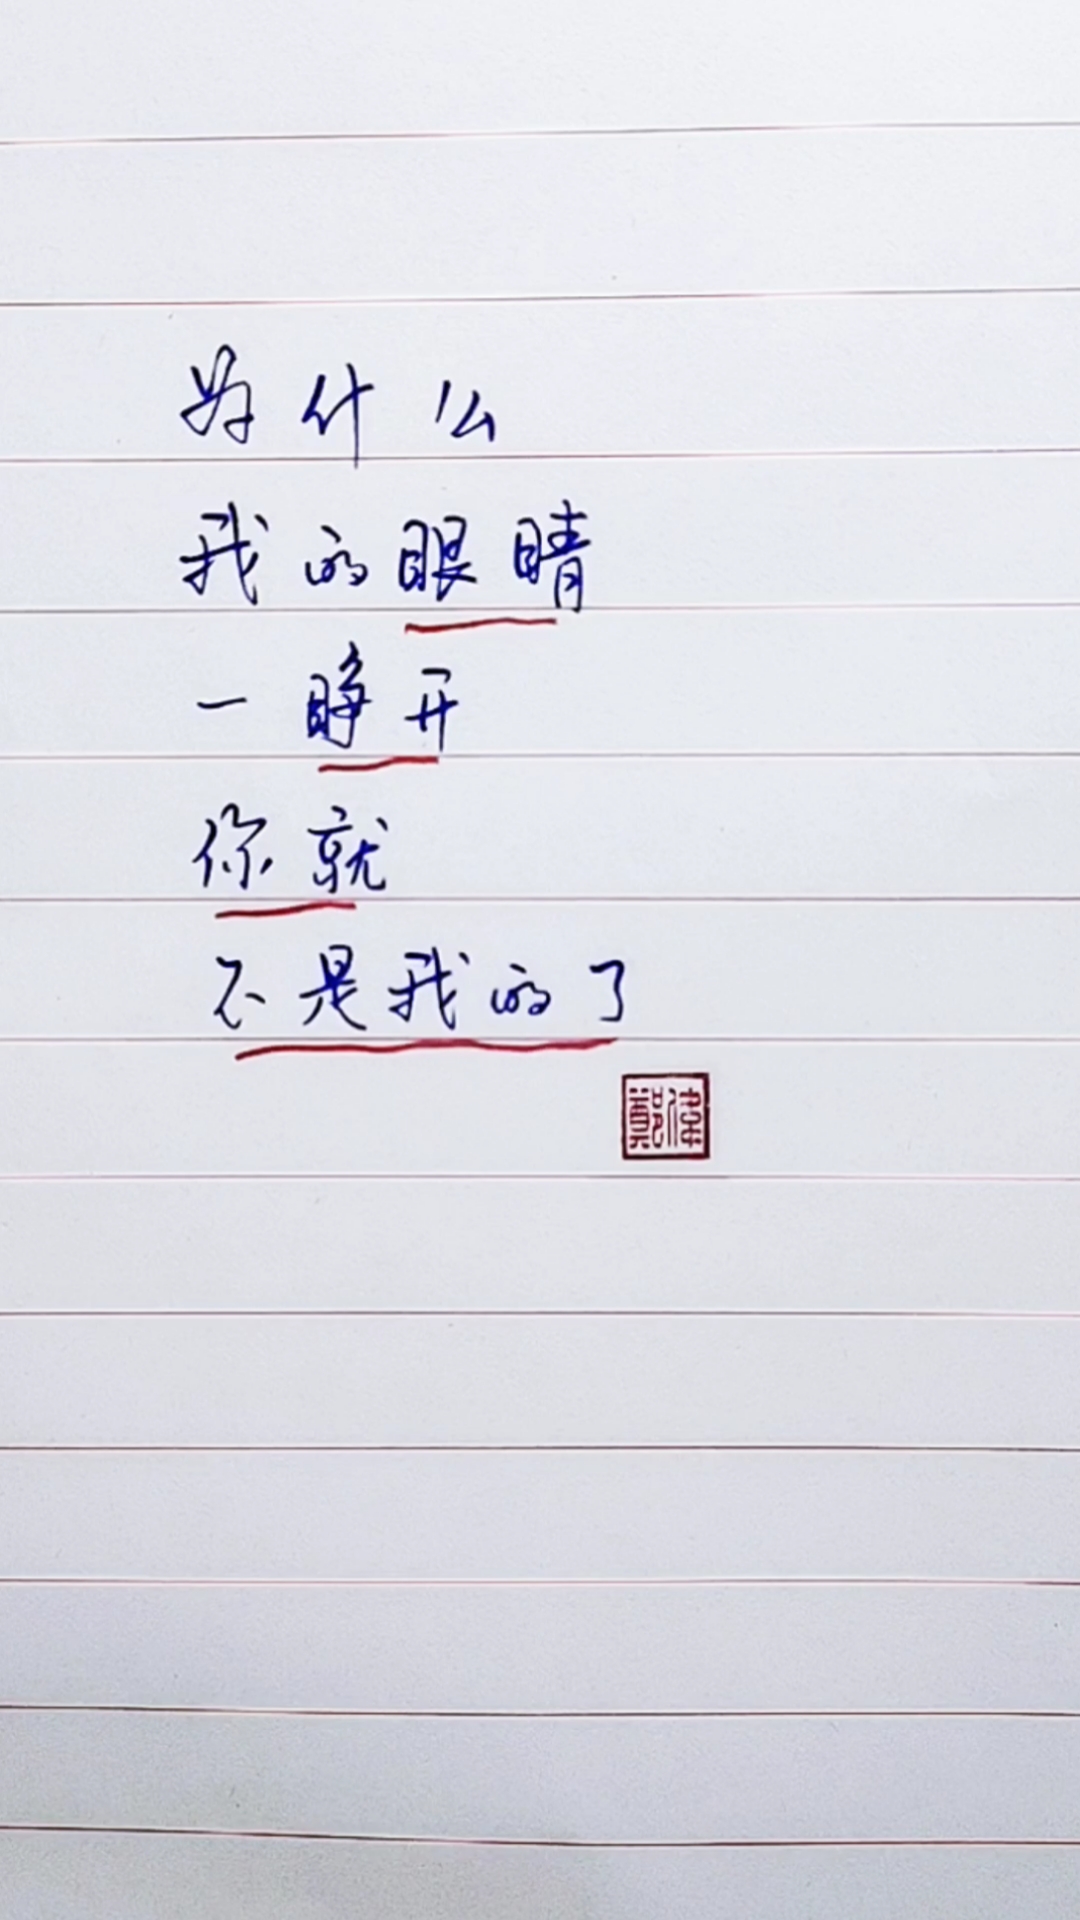 为什么
我的眼睛
一睁开
你就
不是我的了